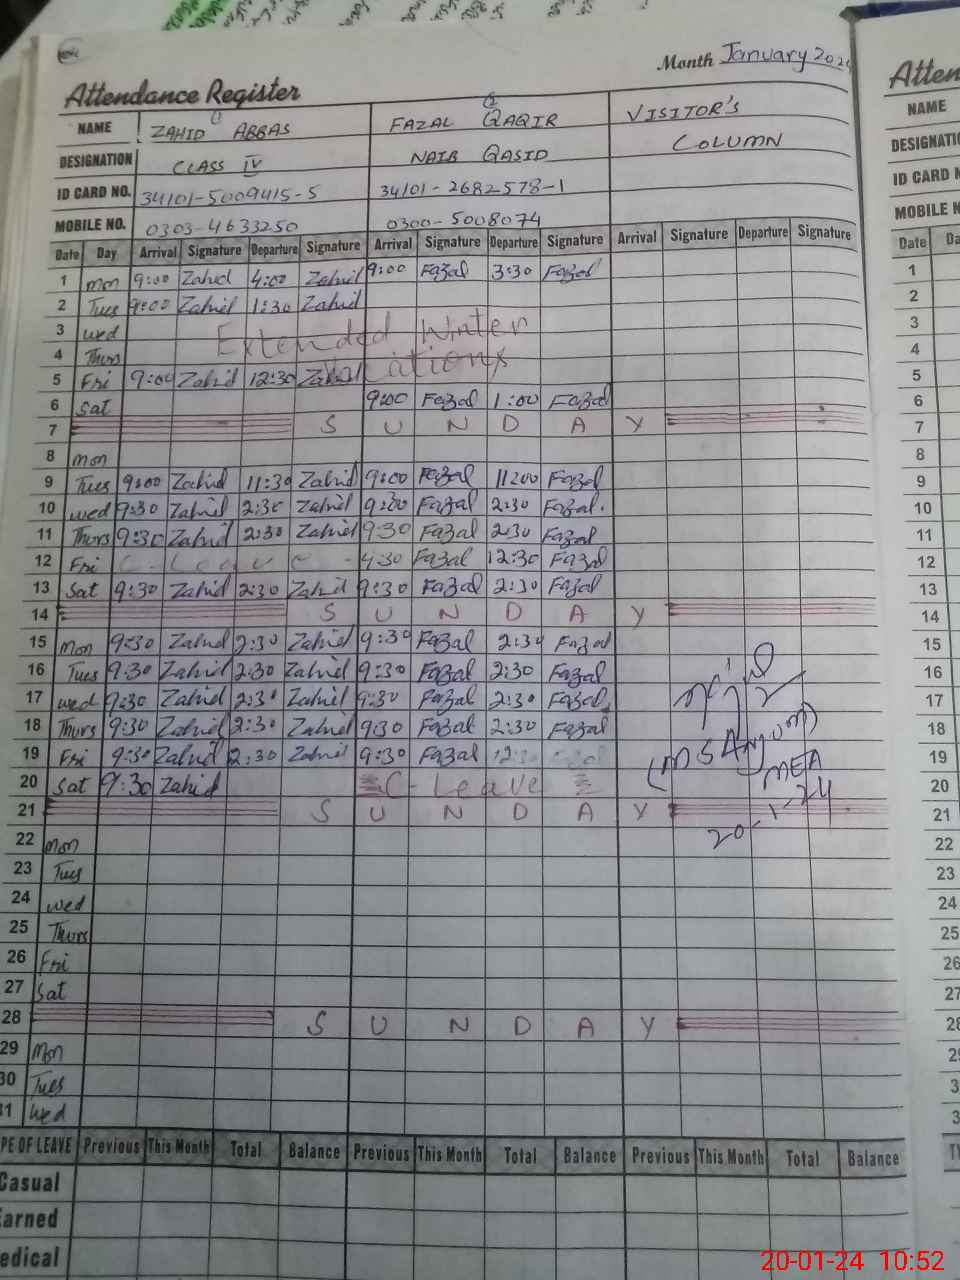 Month January 2024
Attendance Register
NAME ZAHID ABBAS FAZAL QAQIR VISITOR'S
DESIGNATION CLASS IV NAIB QASID COLUMN
ID CARD NO. 34101-5009415-5 34101-2682578-1
MOBILE NO. 0303-4633250 0300-5008074
Date Day Arrival Signature Departure Signature Arrival Signature Departure Signature Arrival Signature Departure Signature
1 Mon 9:00 Zahid 4:00 Zahid 9:00 Fazal 3:30 Fazal
2 Tues 9:00 Zahid 1:30 Zahid
3 Wed Extended Winter
4 Thurs Vacations
5 Fri 9:00 Zahid 12:30 Zahid
6 Sat 9:00 Fazal 1:00 Fazal
7 S U N D A Y
8 Mon
9 Tues 9:00 Zahid 11:30 Zahid 9:00 Fazal 11:00 Fazal
10 Wed 9:30 Zahid 2:30 Zahid 9:00 Fazal 2:30 Fazal.
11 Thurs 9:30 Zahid 2:30 Zahid 9:30 Fazal 2:30 Fazal
12 Fri C - Leave - 4:30 Fazal 12:30 Fazal
13 Sat 9:30 Zahid 2:30 Zahid 9:30 Fazal 2:30 Fazal
14 S U N D A Y
15 Mon 9:30 Zahid 2:30 Zahid 9:30 Fazal 2:30 Fazal
16 Tues 9:30 Zahid 2:30 Zahid 9:30 Fazal 2:30 Fazal
17 Wed 9:30 Zahid 2:30 Zahid 9:30 Fazal 2:30 Fazal
18 Thurs 9:30 Zahid 2:30 Zahid 9:30 Fazal 2:30 Fazal
19 Fri 9:30 Zahid 2:30 Zahid 9:30 Fazal
(MS Anjum)
MEA
20-1-24
20 Sat 9:30 Zahid C-Leave
21 S U N D A Y
22 Mon
23 Tues
24 Wed
25 Thurs
26 Fri
27 Sat
28 S U N D A Y
29 Mon
30 Tues
31 Wed
PE OF LEAVE Previous This Month Total Balance Previous This Month Total Balance Previous This Month Total Balance
Casual
Earned
edical
Atten
NAME
DESIGNATI
ID CARD N
MOBILE N
Date Da
1
2
3
4
5
6
7
8
9
10
11
12
13
14
15
16
17
18
19
20
21
22
23
24
25
26
27
28
20-01-24 10:52